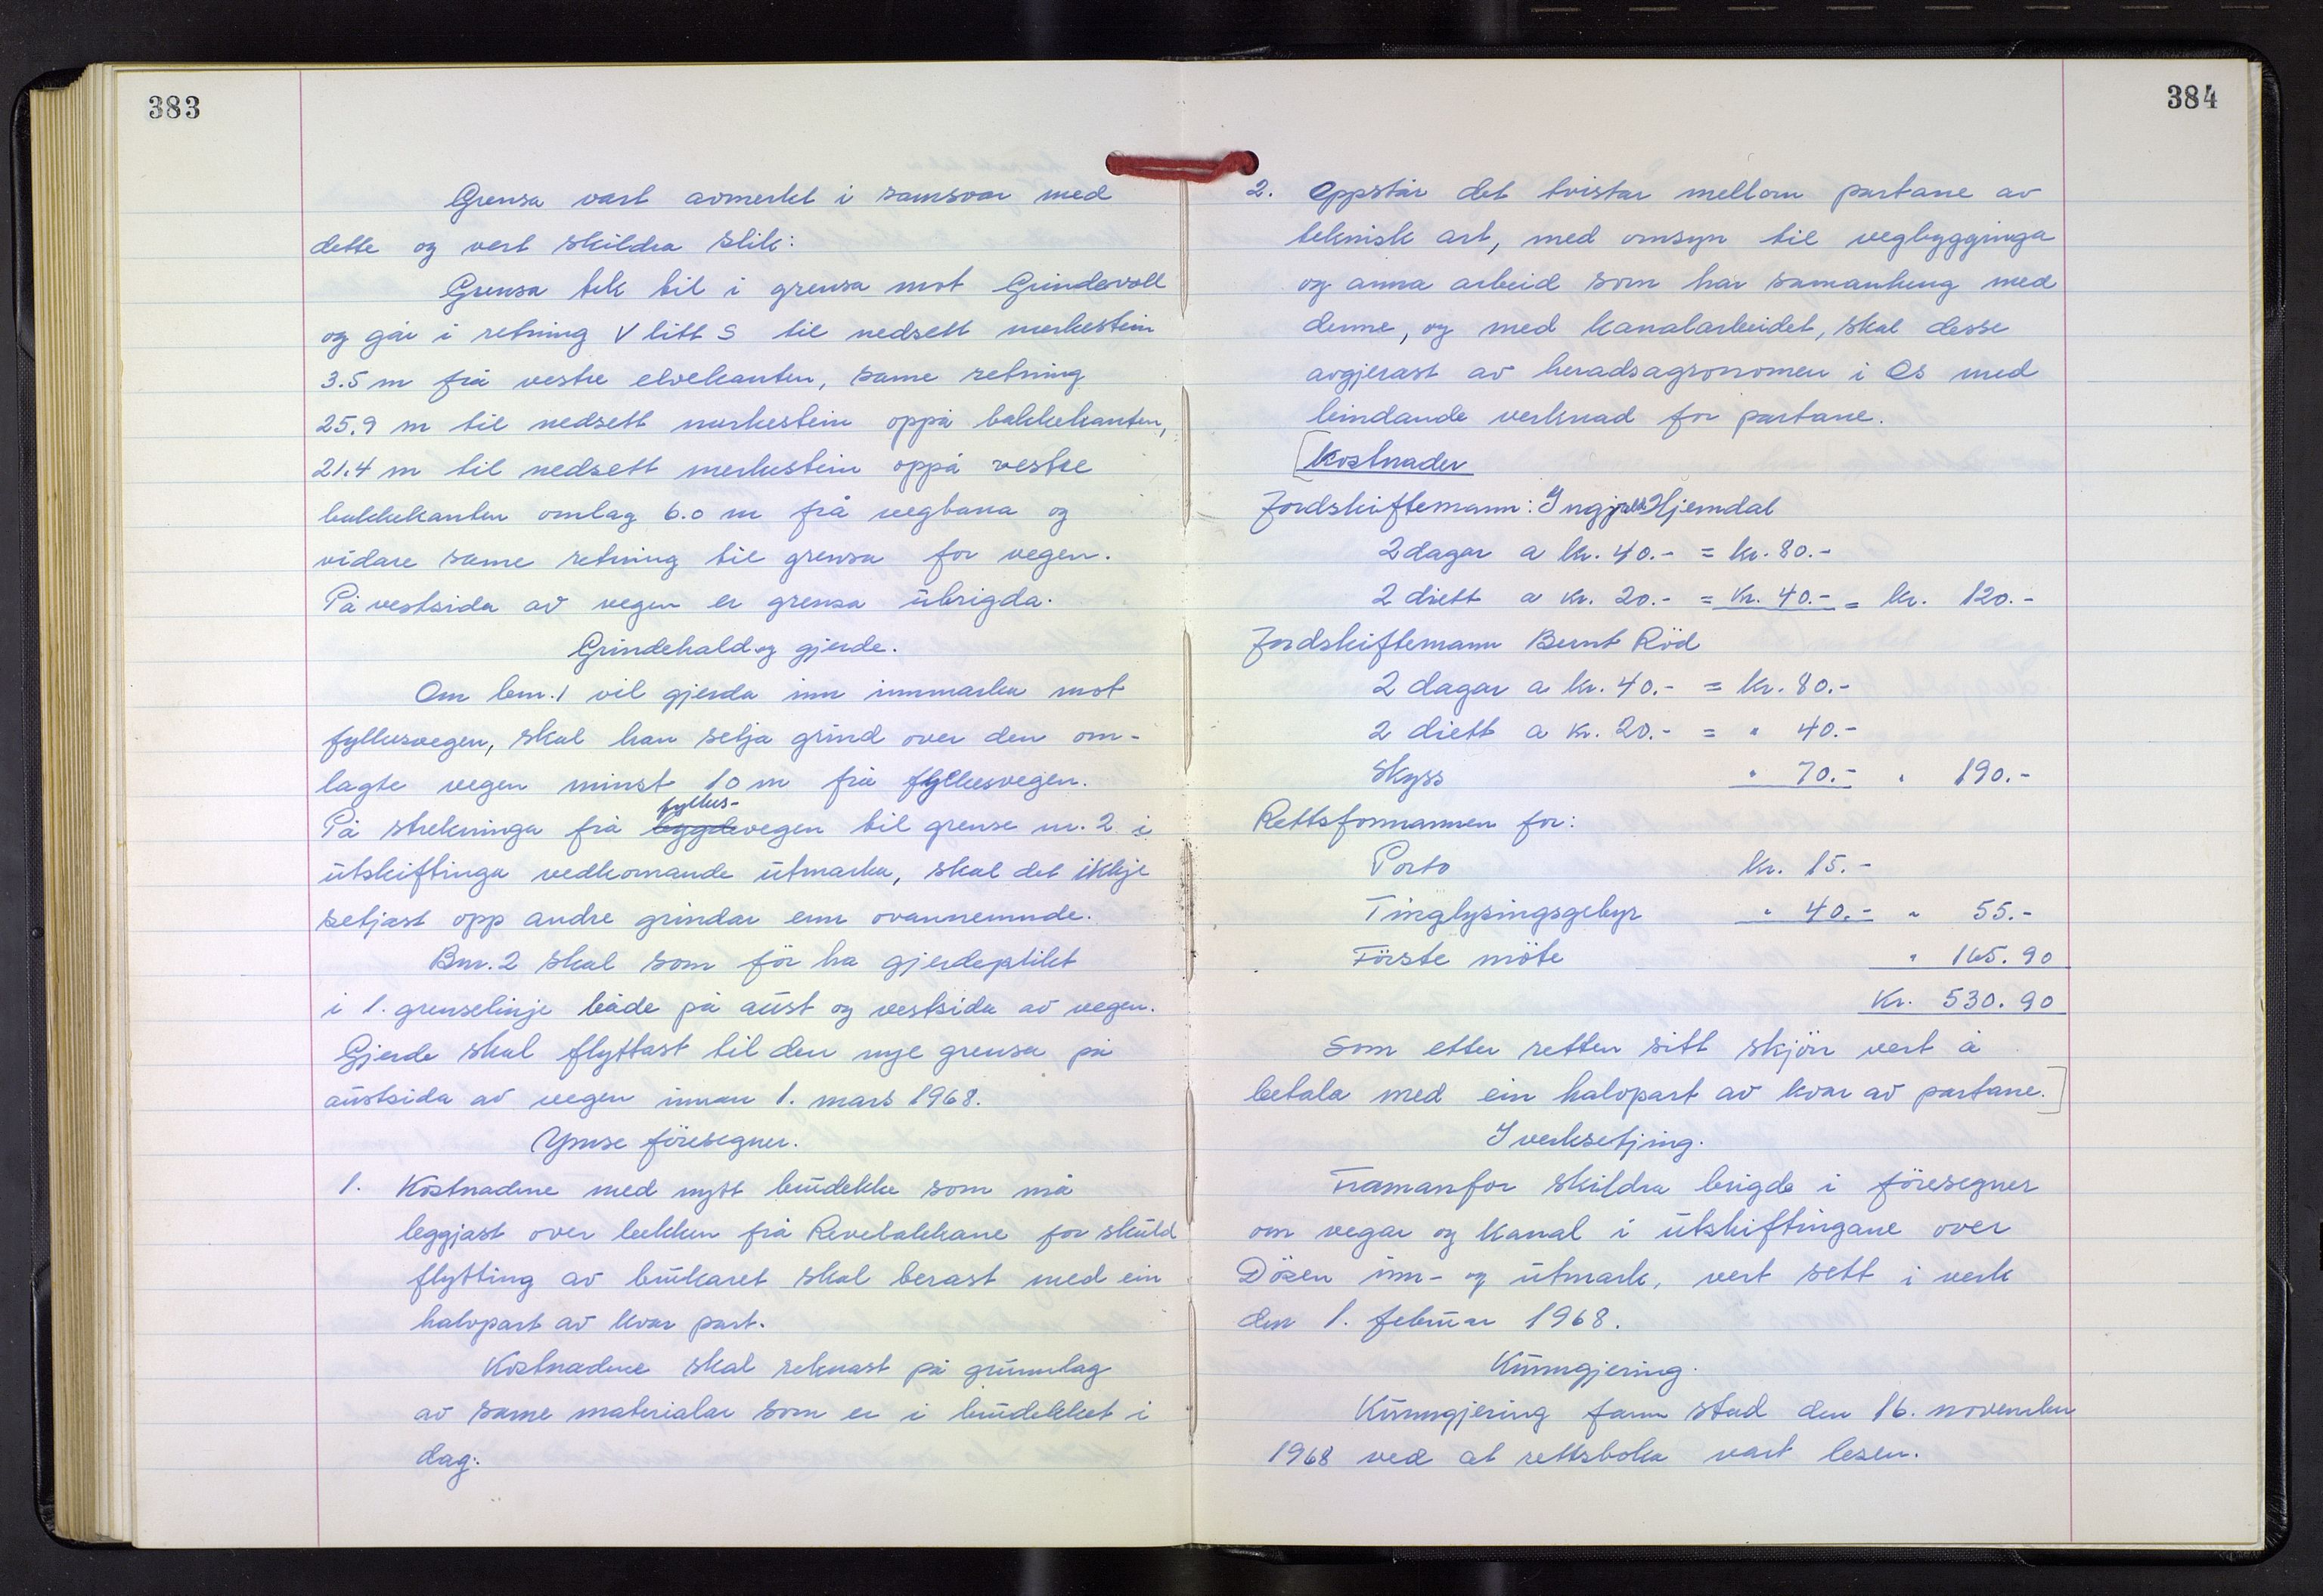 383
Grensa vart avmerket i samsvar med
dette og vert skildra slik:
Grensa tek til i grensa mot Grindevoll
og går i retning V litt S til nedsett merkestein
3.5 m frå vestre elvekanten, same retning
25.9 m til nedsett merkestein oppå bakkekanten,
21.4 m til nedsett merkestein oppå vestre
bakkekanten omlag 6.0 m frå vegbana og
vidare same retning til grensa for vegen.
På vestsida av vegen er grensa ubrigda.
Grindehald og gjerde.
Om bnr. 1 vil gjerda inn innmarka mot
fylkesvegen, skal han setja grind over den om-
lagte vegen minst 10 m frå fylkesvegen.
fylkes-
På strekninga frå bygdevegen til grense nr. 2 i
utskiftinga vedkomande utmarka, skal det ikkje
setjast opp andre grindar enn ovannemnde.
Bnr. 2 skal som för ha gjerdeplikt
i 1. grenselinje både på aust og vestsida av vegen.
Gjerde skal flyttast til den nye grensa på
austsida av vegen innan 1. mars 1968.
Ymse föresegner.
1. Kostnadene med nytt brudekke som må
leggjast over bekken frå Revebakkane for skuld
flytting av brukaret skal berast med ein
halvpart av kvar part.
Kostnadene skal reknast på grunnlag
av same materialar som er i brudekket i
dag.
384
2. Oppstår det tvistar mellom partane av
teknisk art, med omsyn til vegbygginga
og anna arbeid som har samanheng med
denne, og med kanalarbeidet, skal desse
avgjerast av heradsagronomen i Os med
bindande verknad for partane.
[Kostnader
Jordskiftemann: Ingjald Hjemdal
2 dagar a kr. 40.- = kr. 80.-
2 diett a kr. 20.- = kr. 40.- = kr. 120.-
Jordskiftemann Bernt Röd
2 dagar a kr. 40.- = kr. 80.-
2 diett a kr. 20.- = " 40.-
Skyss " 70.- " 190.-
Rettsformannen for:
Porto kr. 15.-
Tinglysingsgebyr " 40.- " 55.-
Förste möte " 165.90
Kr. 530.90
Som etter retten sitt skjön vert å
betala med ein halvpart av kvar av partane.]
Iverksetjing.
Framanfor skildra brigde i föresegner
om vegar og kanal i utskiftingane over
Dösen inn- og utmark, vert sett i verk
den 1. februar 1968.
Kunngjering.
Kunngjering fann stad den 16. november
1968 ved at rettsboka vart lesen.